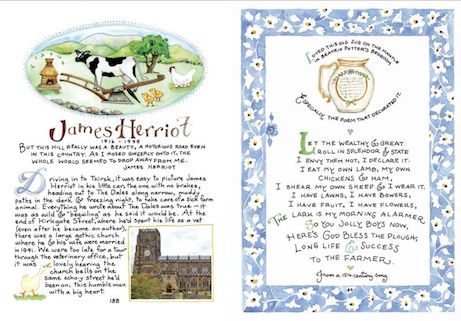 James Herriot
1916 - 1995
But this hill really was a beauty, a notorious road even
in this country. As I nosed gingerly onto it, the
whole world seemed to drop away from me.
James Herriot
Driving in to Thirsk, it was easy to picture James
Herriot in his little car, the one with no brakes,
heading out to The Dales along narrow, muddy,
paths in the dark & freezing night, to take care of a sick farm
animal. Everything he wrote about The Dales was true — it
was as wild & "beguiling" as he said it would be. At the
end of Kirkgate Street, where he'd spent his life as a vet
(even after he became an author),
there was a large gothic church
where he & his wife were married
in 1941. We were too late for a tour
through the veterinary office, but
it was lovely hearing the
church bells on the
same echo-y street he'd
been on, this humble man
with a big heart.
188
Loved this old jug on the mantle
in Beatrix Potter's bedroom
Especially the poem that decorated it.
Let the wealthy & great
Roll in splendor & state
I envy them not, I declare it.
I eat my own lamb, my own
chickens & ham,
I shear my own sheep & I wear it.
I have lawns, I have bowers,
I have fruit, I have flowers,
The lark is my morning alarmer.
So you jolly boys now,
Here's God bless the plough,
Long life & success
to the farmer.